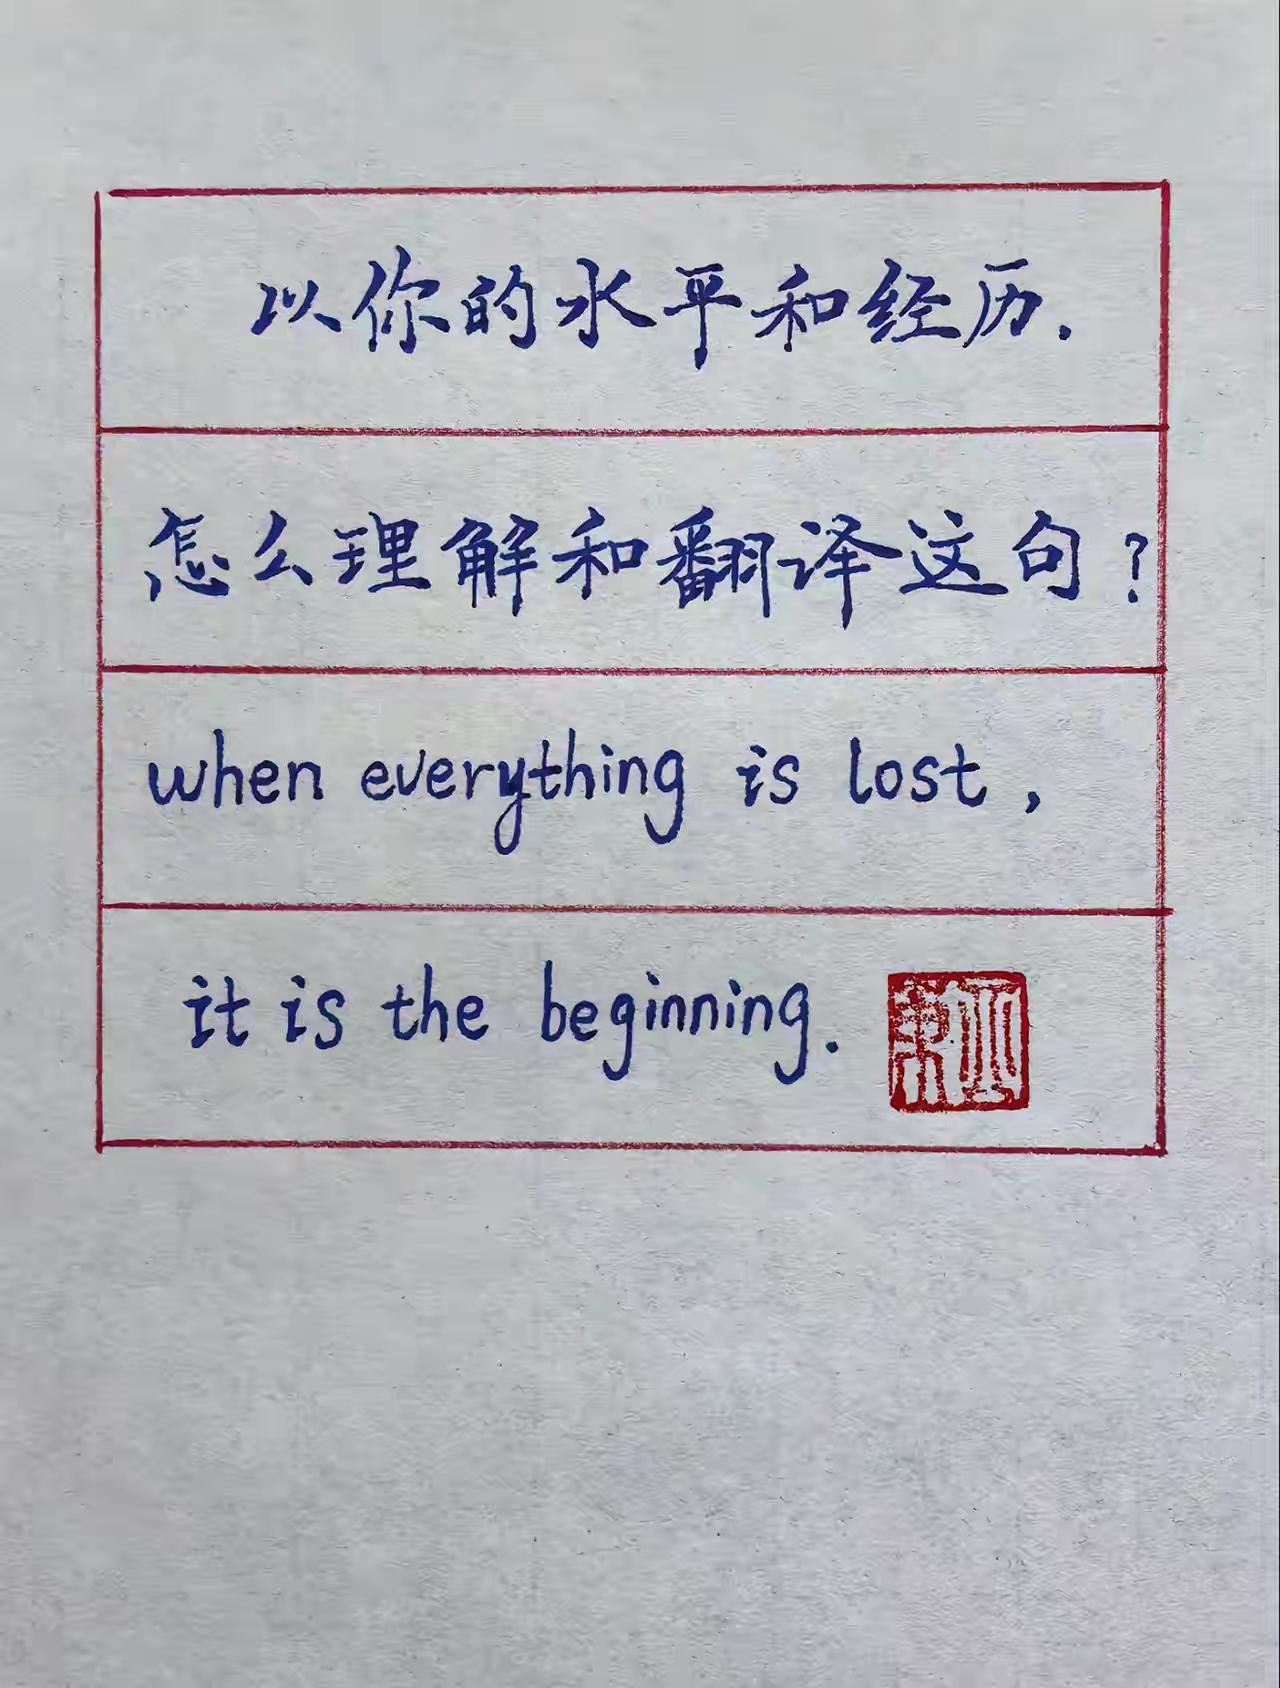 以你的水平和经历.
怎么理解和翻译这句?
when everything is lost,
it is the beginning.